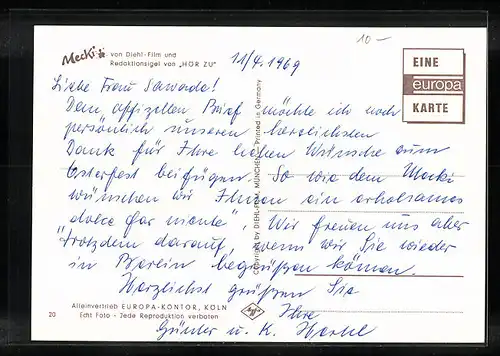 Mecki von Diehl-Film und
Redaktionsigel von „HÖR ZU"
10-
11/4. 1969
EINE
europa
KARTE
Liebe Frau Sawade!
Dem offiziellen Brief möchte ich noch
persönlich unseren herzlichsten
Dank für Ihre lieben Wünsche zum
Osterfest beifügen. So wie dem Mecki
wünschen wir Ihnen ein erholsames
"dolce far niente". Wir freuen uns aber
trotzdem darauf, wenn wir Sie wieder
in Berlin begrüßen können.
Herzlichst grüßen Sie
Ihre
Günter u. K.
Copyright by DIEHL-FILM, MÜNCHEN Printed in Germany
Alleinvertrieb EUROPA-KONTOR, KÖLN
20 Echt Foto - Jede Reproduktion verboten
Agfa